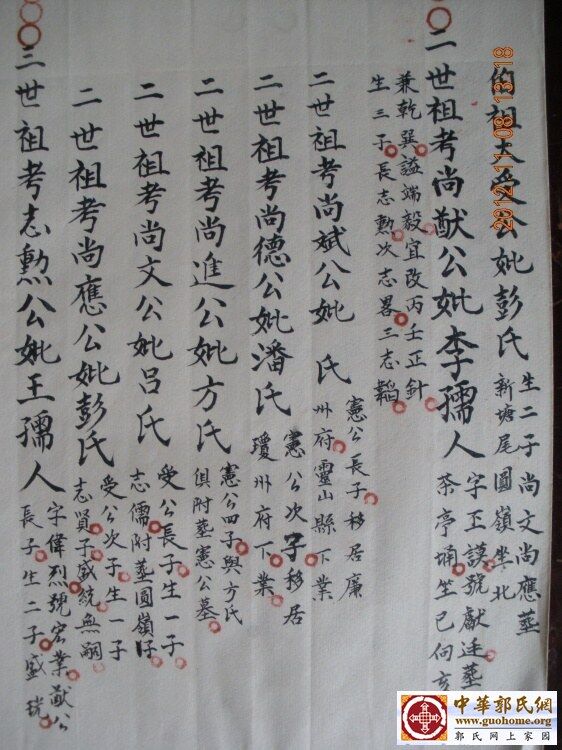 伯祖夫受公妣彭氏
生二子尚文尚應葬
新塘尾圓嶺坐北
二世祖考尚猷公妣李孺人
字丕謨號獻廷葬
茶亭埇坐巳向亥
兼乾巽謚端毅宜改丙壬正針
生三子長志勲次志畧三志韜
二世祖考尚斌公妣 氏
憲公長子移居廉
州府靈山縣下業
二世祖考尚德公妣潘氏
憲公次子移居
瓊州府下業
二世祖考尚進公妣方氏
憲公四子與方氏
俱附葬憲公墓
二世祖考尚文公妣呂氏
受公長子生一子
志儒附葬圓嶺仔
二世祖考尚應公妣彭氏
受公次子生一子
志賢子盛統無嗣
三世祖考志勲公妣王孺人
字偉烈號宏業猷公
長子生二子盛珗
2012 11 08 13:18
中華郭氏網
www.guohome.org
郭氏网上家园